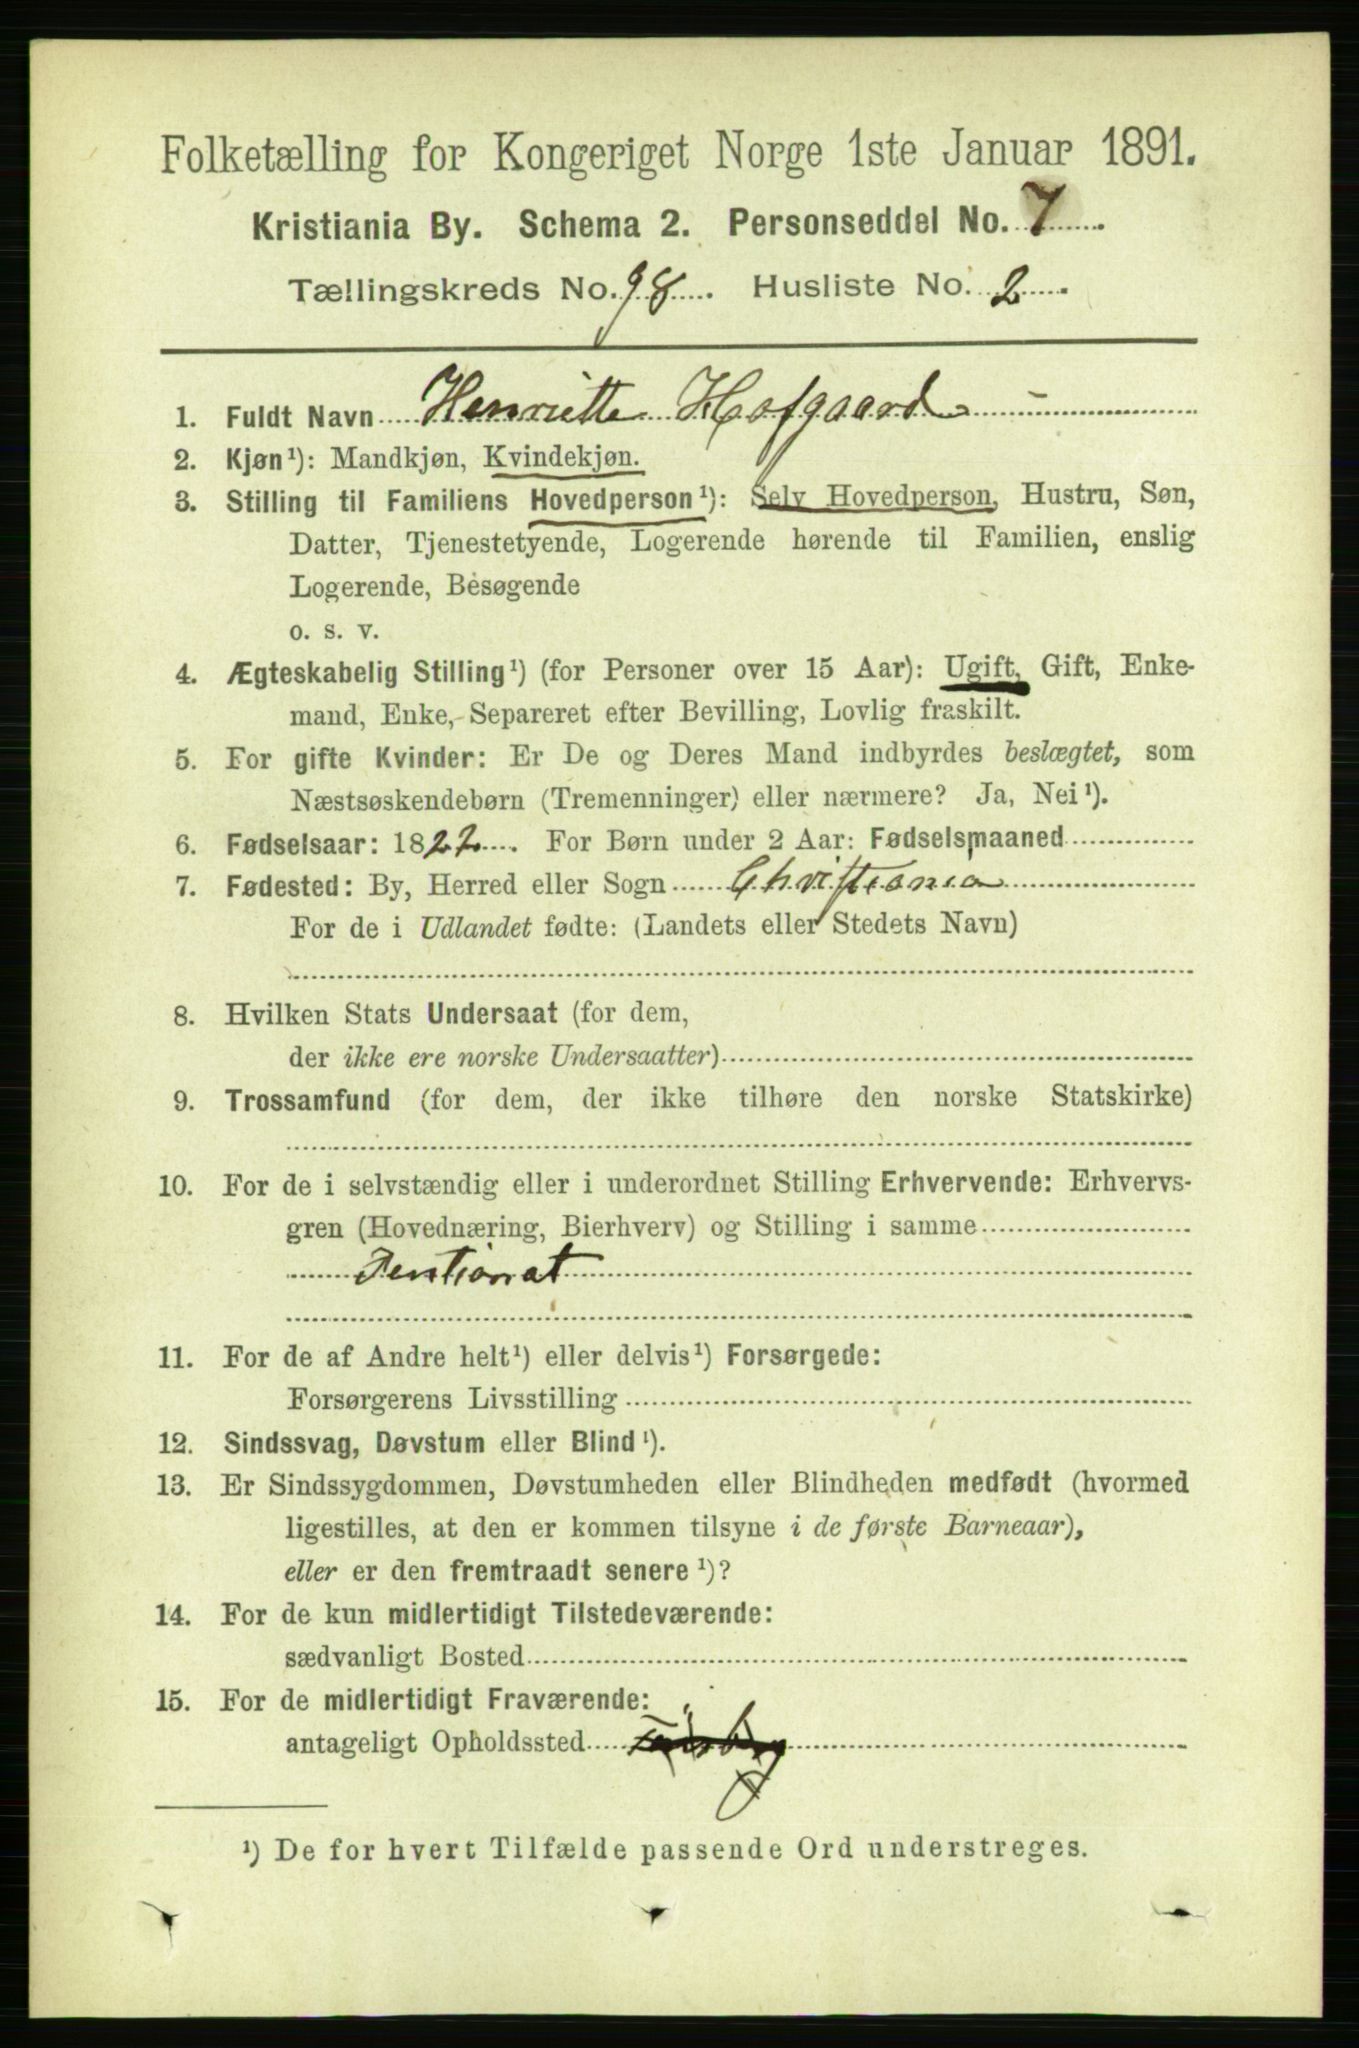 Folketælling for Kongeriget Norge 1ste Januar 1891.
Kristiania By. Schema 2. Personseddel No. 7
Tællingskreds No. 98. Husliste No. 2.
1. Fuldt Navn Henriette Hofgaard
2. Kjøn¹): Mandkjøn, Kvindekjøn.
3. Stilling til Familiens Hovedperson¹): Selv Hovedperson, Hustru, Søn,
Datter, Tjenestetyende, Logerende hørende til Familien, enslig
Logerende, Besøgende
o. s. v.
4. Ægteskabelig Stilling¹) (for Personer over 15 Aar): Ugift, Gift, Enke-
mand, Enke, Separeret efter Bevilling, Lovlig fraskilt.
5. For gifte Kvinder: Er De og Deres Mand indbyrdes beslægtet, som
Næstsøskendebørn (Tremenninger) eller nærmere? Ja, Nei¹).
6. Fødselsaar: 1822. For Børn under 2 Aar: Fødselsmaaned
7. Fødested: By, Herred eller Sogn Christiania
For de i Udlandet fødte: (Landets eller Stedets Navn)
8. Hvilken Stats Undersaat (for dem,
der ikke ere norske Undersaatter)
9. Trossamfund (for dem, der ikke tilhøre den norske Statskirke)
10. For de i selvstændig eller i underordnet Stilling Erhvervende: Erhvervs-
gren (Hovednæring, Bierhverv) og Stilling i samme
Pentionat
11. For de af Andre helt¹) eller delvis¹) Forsørgede:
Forsørgerens Livsstilling
12. Sindssvag, Døvstum eller Blind¹).
13. Er Sindssygdommen, Døvstumheden eller Blindheden medfødt (hvormed
ligestilles, at den er kommen tilsyne i de første Barneaar),
eller er den fremtraadt senere¹)?
14. For de kun midlertidigt Tilstedeværende:
sædvanligt Bosted
15. For de midlertidigt Fraværende:
antageligt Opholdssted
¹) De for hvert Tilfælde passende Ord understreges.